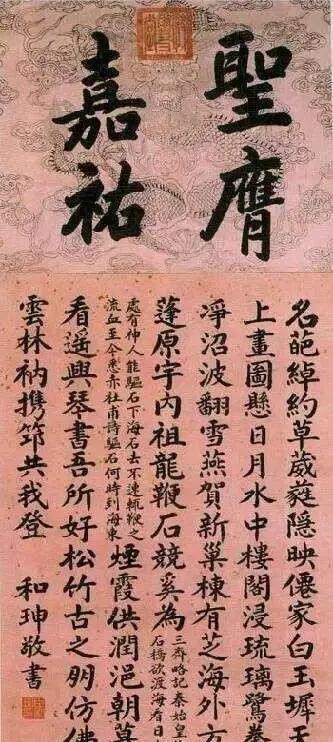 聖膺
嘉祐
名葩綽約草葳蕤隱映僊家白玉墀天
上畫圖懸日月水中樓閣浸琉璃鷺卷
淨沼波翻雪燕賀新巢棟有芝海外方
蓬原宇内祖龍鞭石競奚為
三齊略記秦始皇
石橋欲渡海有日
處有神人能驅石下海石去不速輒鞭之
流血至今悉赤杜甫詩驅石何時到海東
煙霞供潤浥朝暮
看遙興琴書吾所好松竹古之朋仿佛
雲林衲携筇共我登
和珅敬書